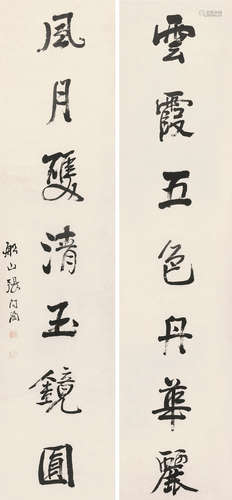 雲霞五色丹華麗
風月雙清玉鏡圓
船山張問陶